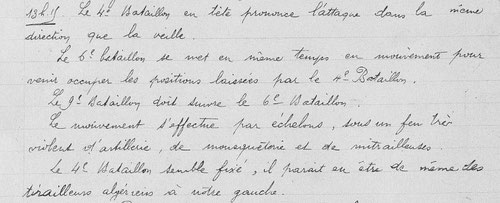 13h15. Le 4e Bataillon en tête prononce l'attaque dans la même
direction que la veille.
Le 6e bataillon se met en même temps en mouvement pour
venir occuper les positions laissées par le 4e Bataillon.
Le 9e Bataillon doit suivre le 6e Bataillon.
Le mouvement s'effectue par échelons, sous un feu très
violent d'artillerie, de mousquèterie et de mitrailleuses.
Le 4e Bataillon semble fixé, il parait en être de même des
tirailleurs algériens à notre gauche.